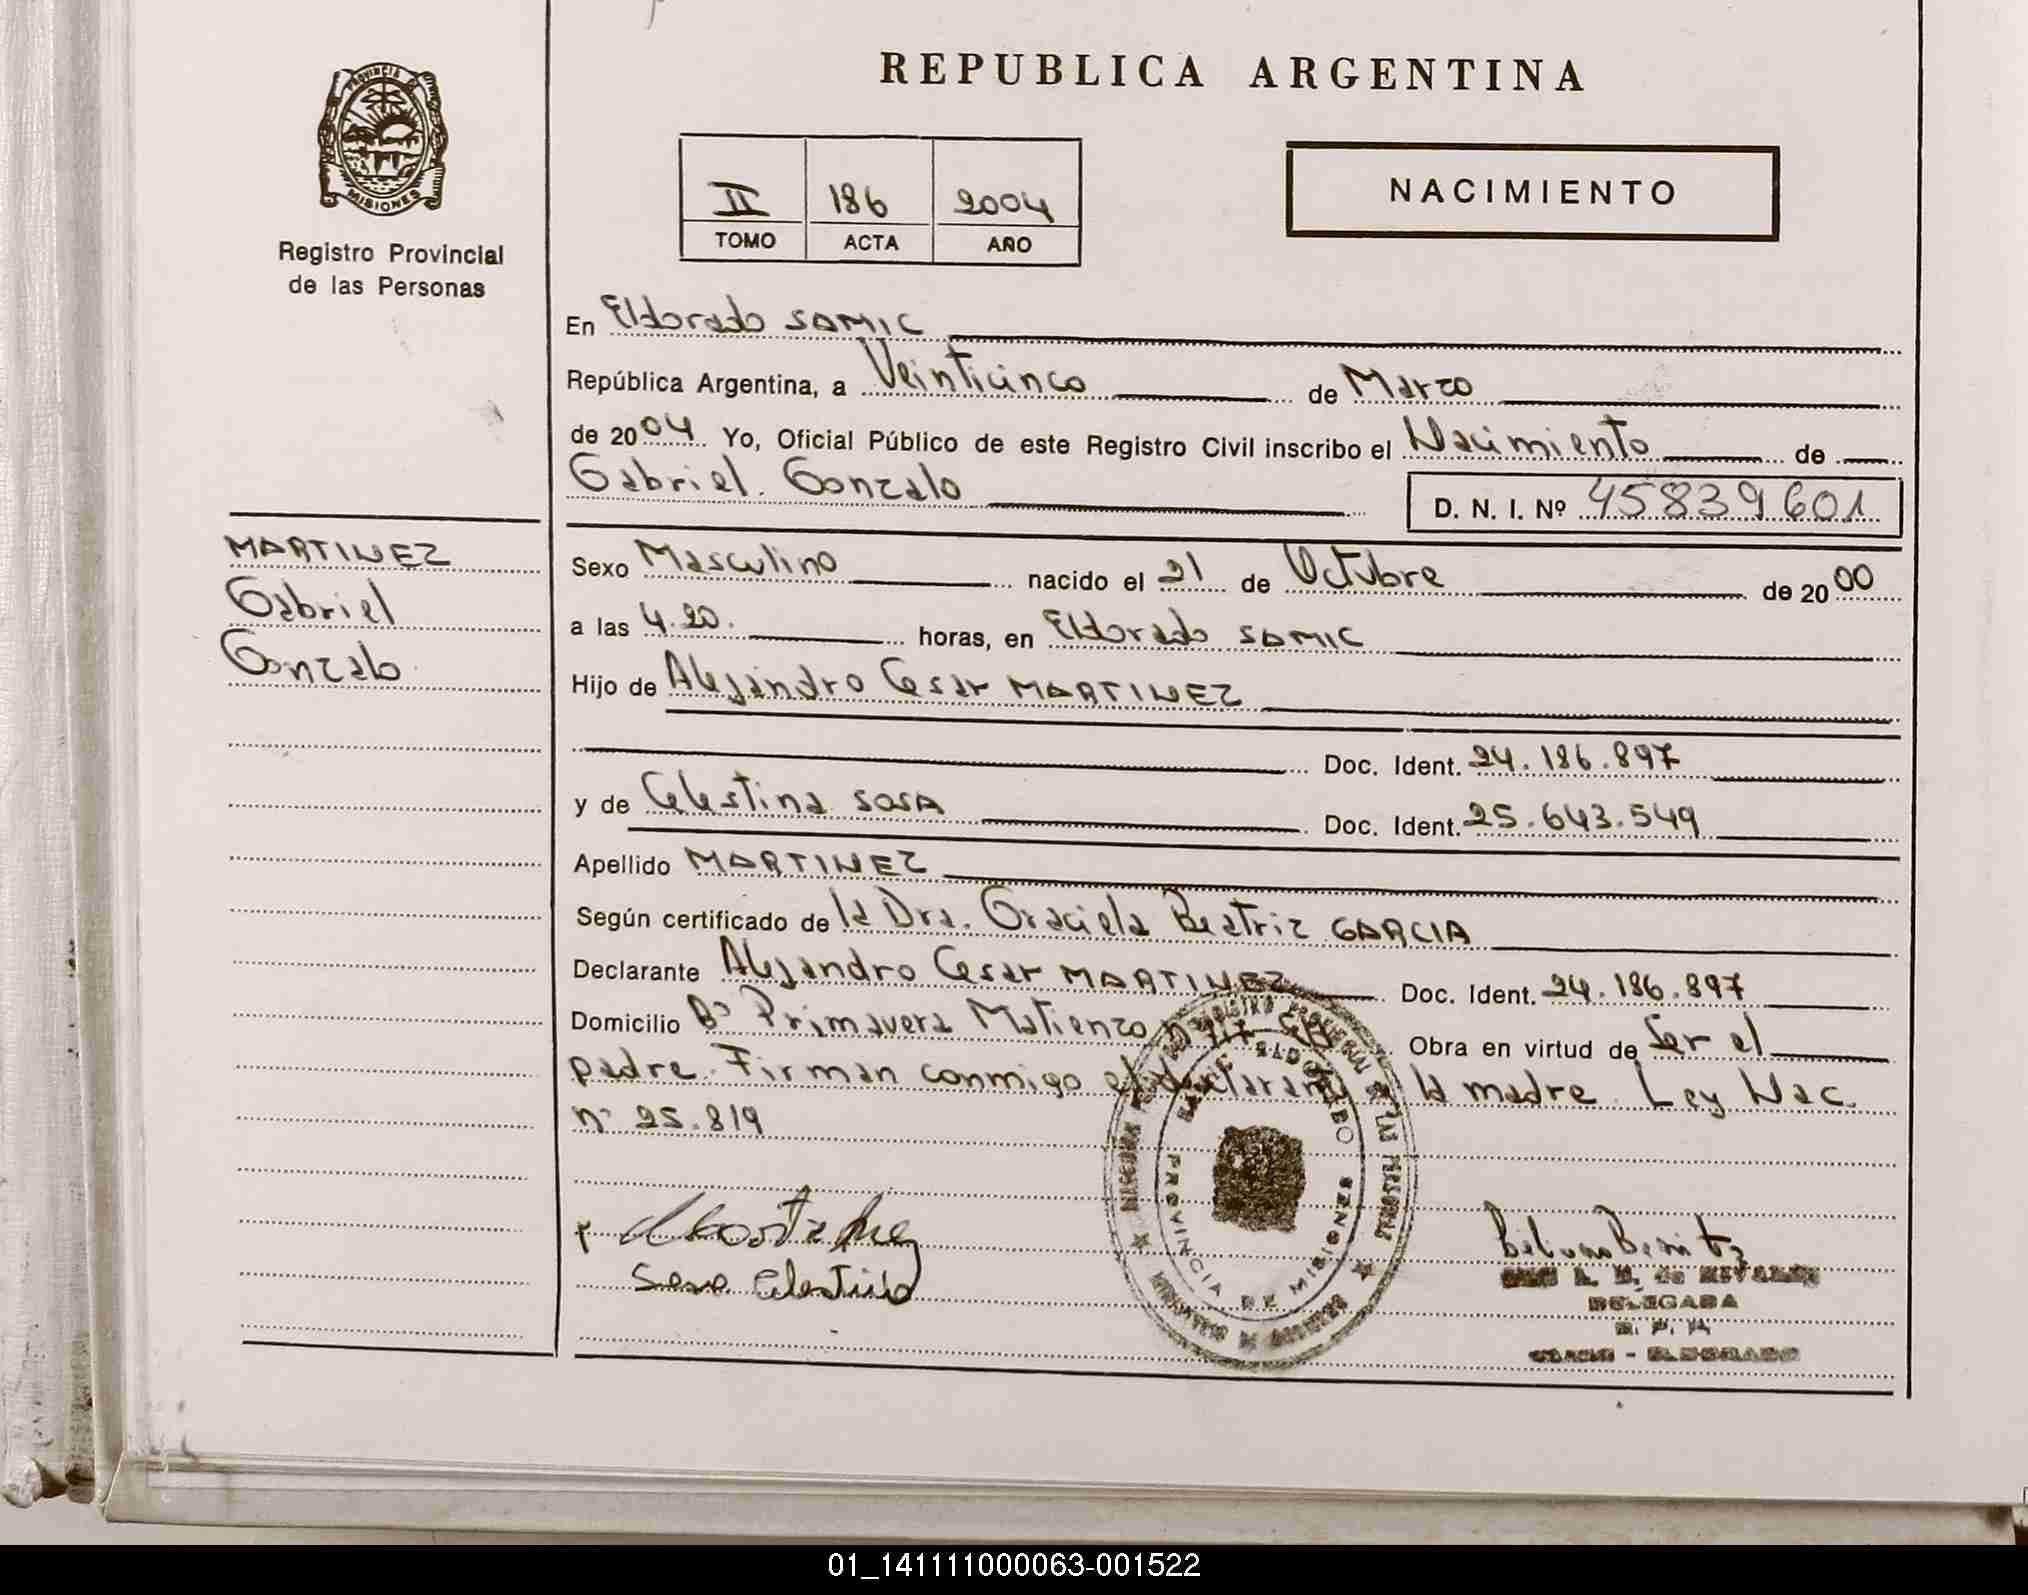 REPUBLICA ARGENTINA
PROVINCIA DE
MISIONES
Registro Provincial
de las Personas
II 186 2004
TOMO ACTA AÑO
NACIMIENTO
En Eldorado SAMIC
República Argentina, a Veinticinco de Marzo
de 2004 Yo, Oficial Público de este Registro Civil inscribo el Nacimiento de
Gabriel Gonzalo
D. N. I. Nº 45839601
MARTINEZ
Gabriel
Gonzalo
Sexo Masculino nacido el 21 de Octubre de 2000
a las 4.20. horas, en Eldorado SAMIC
Hijo de Alejandro Cesar MARTINEZ
Doc. Ident. 24.186.897
y de Celestina SOSA Doc. Ident. 25.643.549
Apellido MARTINEZ
Según certificado de la Dra. Graciela Beatriz GARCIA
Declarante Alejandro Cesar MARTINEZ Doc. Ident. 24.186.897
Domicilio Bº Primavera Matienzo Obra en virtud de Ser el
padre. Firman conmigo el declarante y la madre. Ley Nac.
nº 25.819
Sosa Celestina
PROVINCIA DE MISIONES
DELEGADA
R. P. P.
ELDORADO
01_141111000063-001522